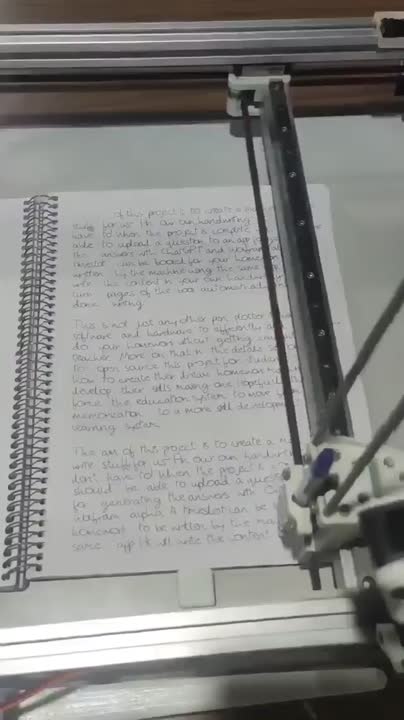 of this project is to create a
stuff for us in our own handwriting
have to when the project is complete
able to upload a question to an app
the answers with ChatGPT and wolfram
timeslot can be booked for your homework
written by the machine using the same app
write the content in your own handwriting
turn pages of the book automatically
done writing
This is not just any other pen plotter
software and hardware to efficiently
do your homework without getting
teacher. More on that in the details
to open source this project for students
how to create their dream homework machine
develop their skills making one hopefully
force the education system to move from
memorization to a more skill development
learning system.
The aim of this project is to create a
write stuff for us in our own handwriting
don't have to! when the project is
should be able to upload a question
for generating the answers with
wolfram alpha. A timeslot can be
homework to be written by the
same app it will write the content